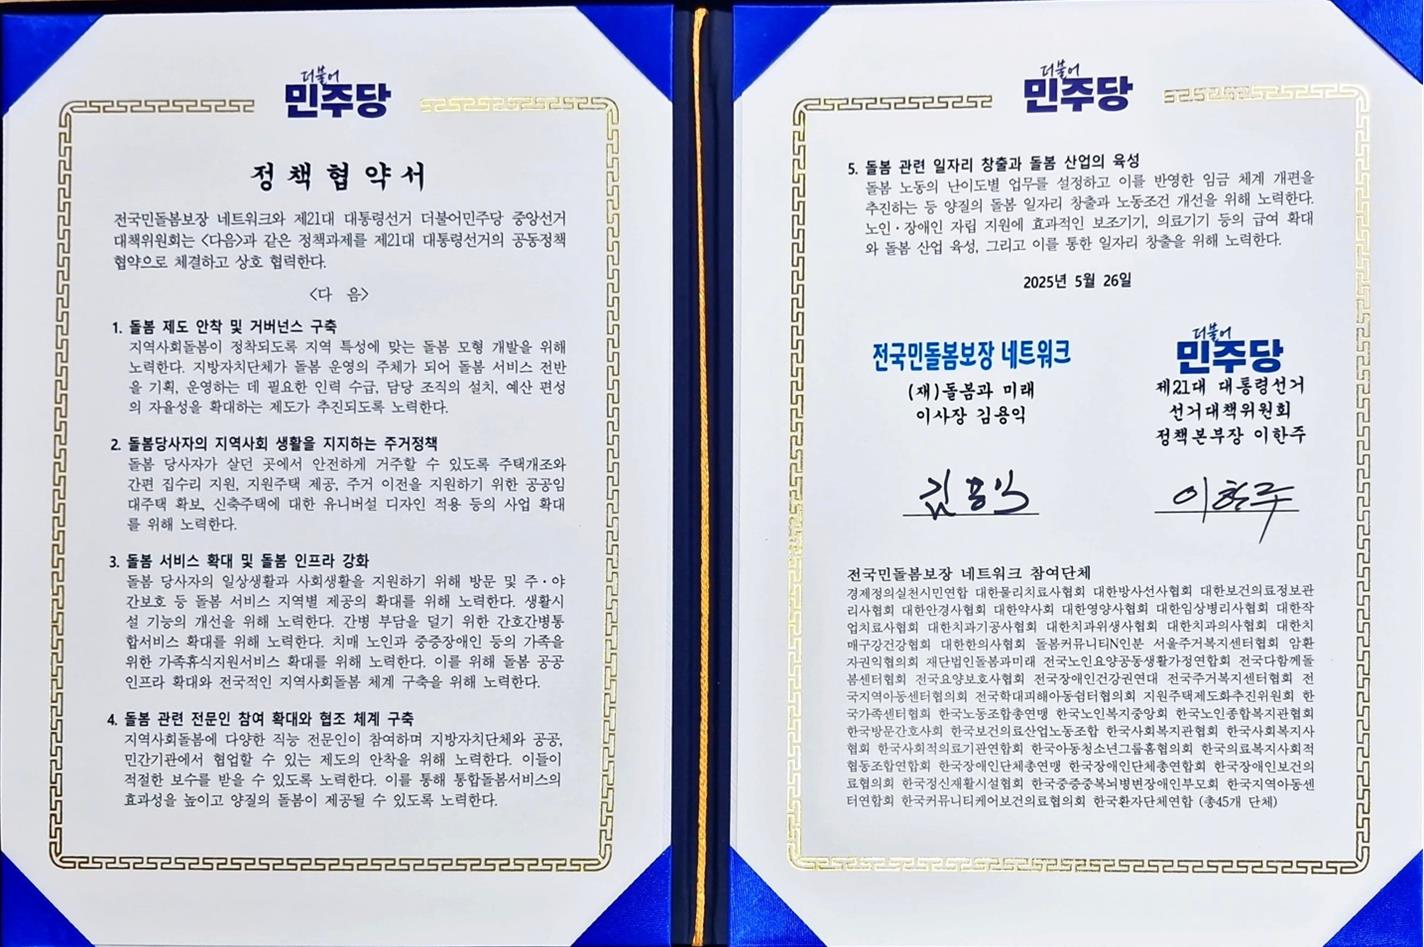 더불어
민주당
정책협약서
전국민돌봄보장 네트워크와 제21대 대통령선거 더불어민주당 중앙선거
대책위원회는 <다음>과 같은 정책과제를 제21대 대통령선거의 공동정책
협약으로 체결하고 상호 협력한다.
<다 음>
1. 돌봄 제도 안착 및 거버넌스 구축
지역사회돌봄이 정착되도록 지역 특성에 맞는 돌봄 모형 개발을 위해
노력한다. 지방자치단체가 돌봄 운영의 주체가 되어 돌봄 서비스 전반
을 기획, 운영하는 데 필요한 인력 수급, 담당 조직의 설치, 예산 편성
의 자율성을 확대하는 제도가 추진되도록 노력한다.
2. 돌봄당사자의 지역사회 생활을 지지하는 주거정책
돌봄 당사자가 살던 곳에서 안전하게 거주할 수 있도록 주택개조와
간편 집수리 지원, 지원주택 제공, 주거 이전을 지원하기 위한 공공임
대주택 확보, 신축주택에 대한 유니버설 디자인 적용 등의 사업 확대
를 위해 노력한다.
3. 돌봄 서비스 확대 및 돌봄 인프라 강화
돌봄 당사자의 일상생활과 사회생활을 지원하기 위해 방문 및 주·야
간보호 등 돌봄 서비스 지역별 제공의 확대를 위해 노력한다. 생활시
설 기능의 개선을 위해 노력한다. 간병 부담을 덜기 위한 간호간병통
합서비스 확대를 위해 노력한다. 치매 노인과 중증장애인 등의 가족을
위한 가족휴식지원서비스 확대를 위해 노력한다. 이를 위해 돌봄 공공
인프라 확대와 전국적인 지역사회돌봄 체계 구축을 위해 노력한다.
4. 돌봄 관련 전문인 참여 확대와 협조 체계 구축
지역사회돌봄에 다양한 직능 전문인이 참여하며 지방자치단체와 공공,
민간기관에서 협업할 수 있는 제도의 안착을 위해 노력한다. 이들이
적절한 보수를 받을 수 있도록 노력한다. 이를 통해 통합돌봄서비스의
효과성을 높이고 양질의 돌봄이 제공될 수 있도록 노력한다.
더불어
민주당
5. 돌봄 관련 일자리 창출과 돌봄 산업의 육성
돌봄 노동의 난이도별 업무를 설정하고 이를 반영한 임금 체계 개편을
추진하는 등 양질의 돌봄 일자리 창출과 노동조건 개선을 위해 노력한다.
노인·장애인 자립 지원에 효과적인 보조기기, 의료기기 등의 급여 확대
와 돌봄 산업 육성, 그리고 이를 통한 일자리 창출을 위해 노력한다.
2025년 5월 26일
전국민돌봄보장 네트워크
(재)돌봄과 미래
이사장 김용익
김용익
더불어
민주당
제21대 대통령선거
선거대책위원회
정책본부장 이한주
이한주
전국민돌봄보장 네트워크 참여단체
경제정의실천시민연합 대한물리치료사협회 대한방사선사협회 대한보건의료정보관
리사협회 대한안경사협회 대한약사회 대한영양사협회 대한임상병리사협회 대한작
업치료사협회 대한치과기공사협회 대한치과위생사협회 대한치과의사협회 대한치
매구강건강협회 대한한의사협회 돌봄커뮤니티N인분 서울주거복지센터협회 암환
자권익협의회 재단법인돌봄과미래 전국노인요양공동생활가정연합회 전국다함께돌
봄센터협회 전국요양보호사협회 전국장애인건강권연대 전국주거복지센터협회 전
국지역아동센터협의회 전국학대피해아동쉼터협의회 지원주택제도화추진위원회 한
국가족센터협회 한국노동조합총연맹 한국노인복지중앙회 한국노인종합복지관협회
한국방문간호사회 한국보건의료산업노동조합 한국사회복지관협회 한국사회복지사
협회 한국사회적의료기관연합회 한국아동청소년그룹홈협의회 한국의료복지사회적
협동조합연합회 한국장애인단체총연맹 한국장애인단체총연합회 한국장애인보건의
료협의회 한국정신재활시설협회 한국중증중복뇌병변장애인부모회 한국지역아동센
터연합회 한국커뮤니티케어보건의료협의회 한국환자단체연합 (총45개 단체)